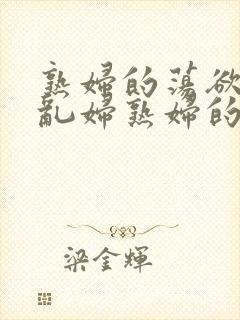 熟婦的蕩欲
亂婦熟婦的
梁金輝